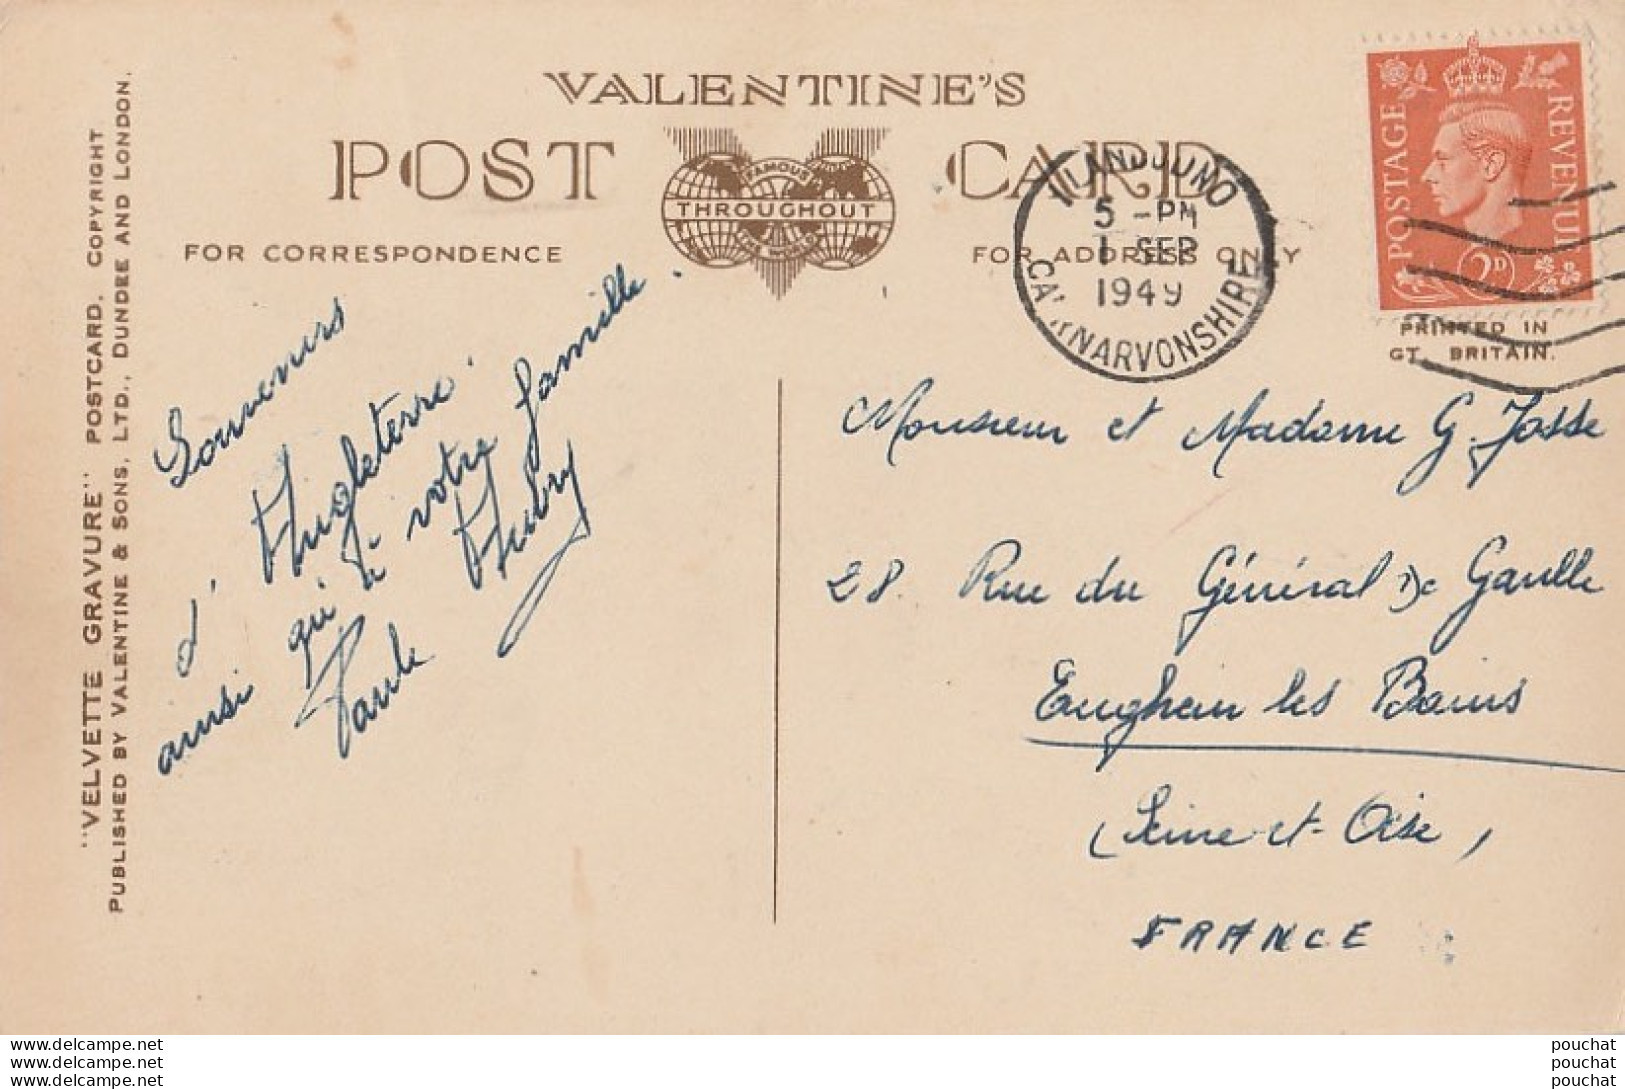 VALENTINE'S
POST CARD
FAMOUS
THROUGHOUT
THE WORLD
FOR CORRESPONDENCE
FOR ADDRESS ONLY
"VELVETTE GRAVURE" POSTCARD. COPYRIGHT
PUBLISHED BY VALENTINE & SONS, LTD., DUNDEE AND LONDON.
POSTAGE
REVENUE
2D
PRINTED IN
GT. BRITAIN.
LLANDUDNO
5 - PM
1 SEP
1949
CAERNARVONSHIRE
Souvenirs
d'Angleterre
ainsi qu'à votre famille.
Paule Aubry
Monsieur et Madame G. Josse
28 Rue du Général De Gaulle
Enghien les Bains
(Seine et-Oise)
FRANCE
www.delcampe.net
www.delcampe.net
www.delcampe.net
pouchat
pouchat
pouchat